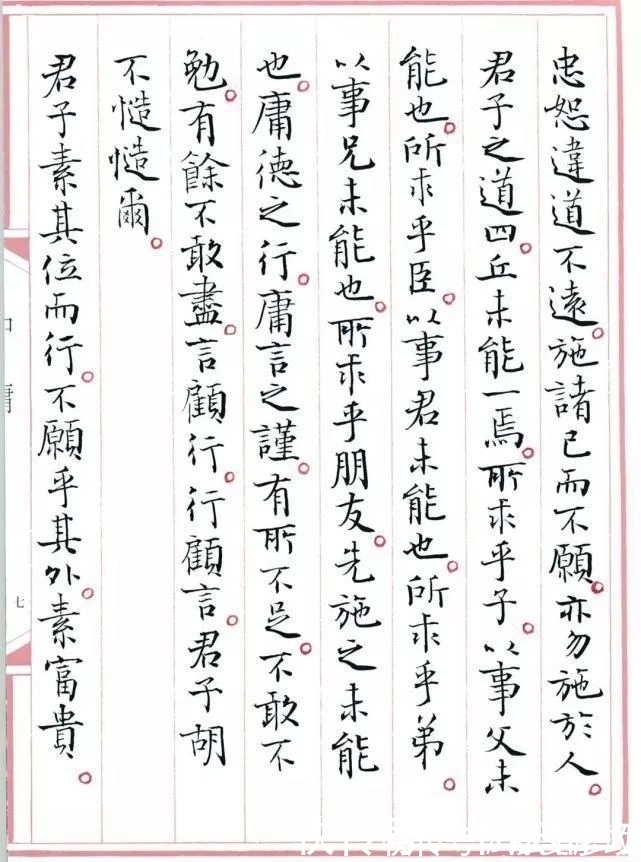 忠恕違道不遠。施諸己而不願。亦勿施於人。
君子之道四。丘未能一焉。所求乎子。以事父未
能也。所求乎臣。以事君未能也。所求乎弟。
以事兄未能也。所求乎朋友。先施之未能
也。庸德之行。庸言之謹。有所不足。不敢不
勉。有餘不敢盡。言顧行。行顧言。君子胡
不慥慥爾。
君子素其位而行。不願乎其外。素富貴。
中庸
七